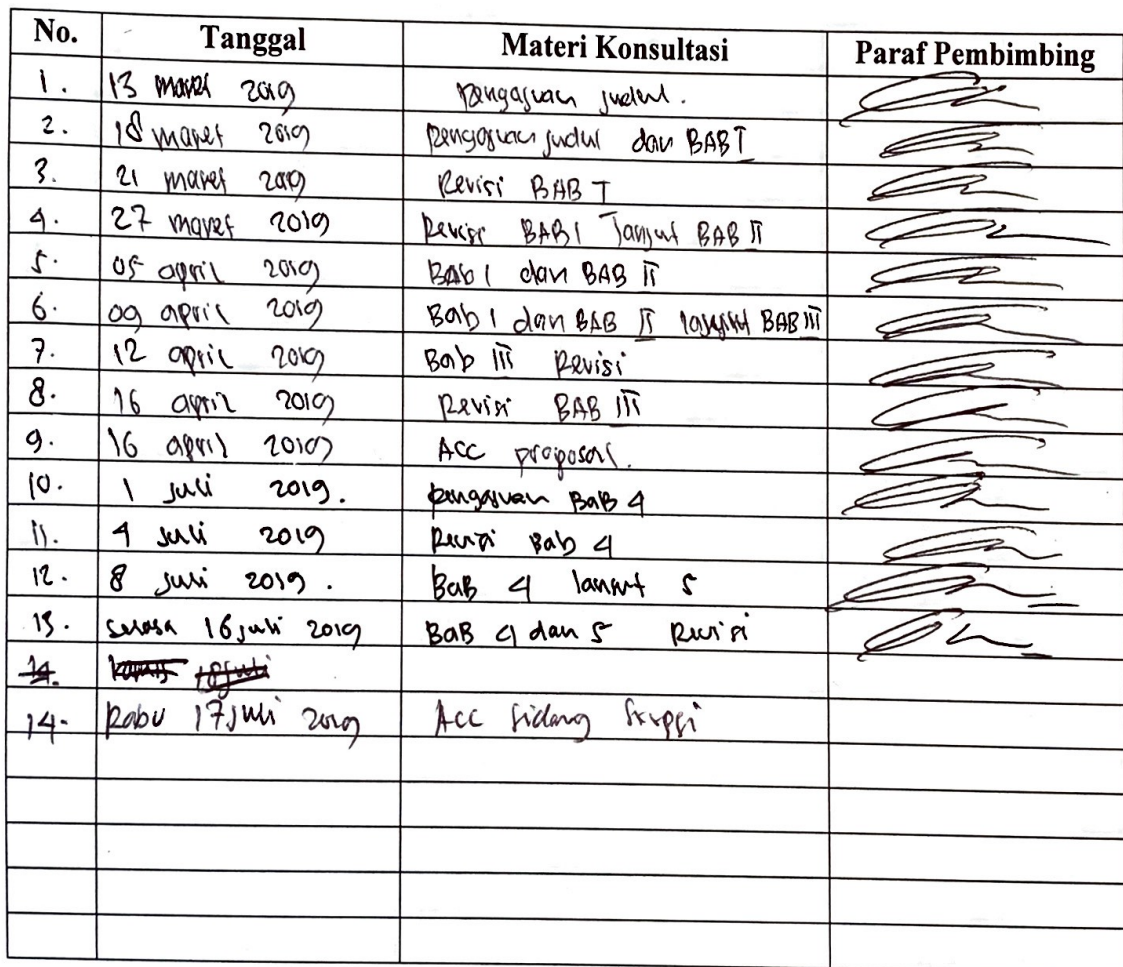 No. Tanggal Materi Konsultasi Paraf Pembimbing
1. 13 maret 2019 pengajuan judul.
2. 18 maret 2019 pengajuan judul dan BAB I
3. 21 maret 2019 Revisi BAB I
4. 27 maret 2019 Revisi BAB I lanjut BAB II
5. 05 april 2019 Bab I dan BAB II
6. 09 april 2019 Bab I dan BAB II lanjut BAB III
7. 12 april 2019 Bab III Revisi
8. 16 april 2019 Revisi BAB III
9. 16 april 2019 ACC proposal.
10. 1 juli 2019. pengajuan BaB 4
11. 4 juli 2019 Revisi Bab 4
12. 8 juli 2019. BaB 4 lanjut 5
13. selasa 16 juli 2019 BaB 4 dan 5 Revisi
14. kamis 18 juli
14. Rabu 17 juli 2019 Acc Sidang Skripsi